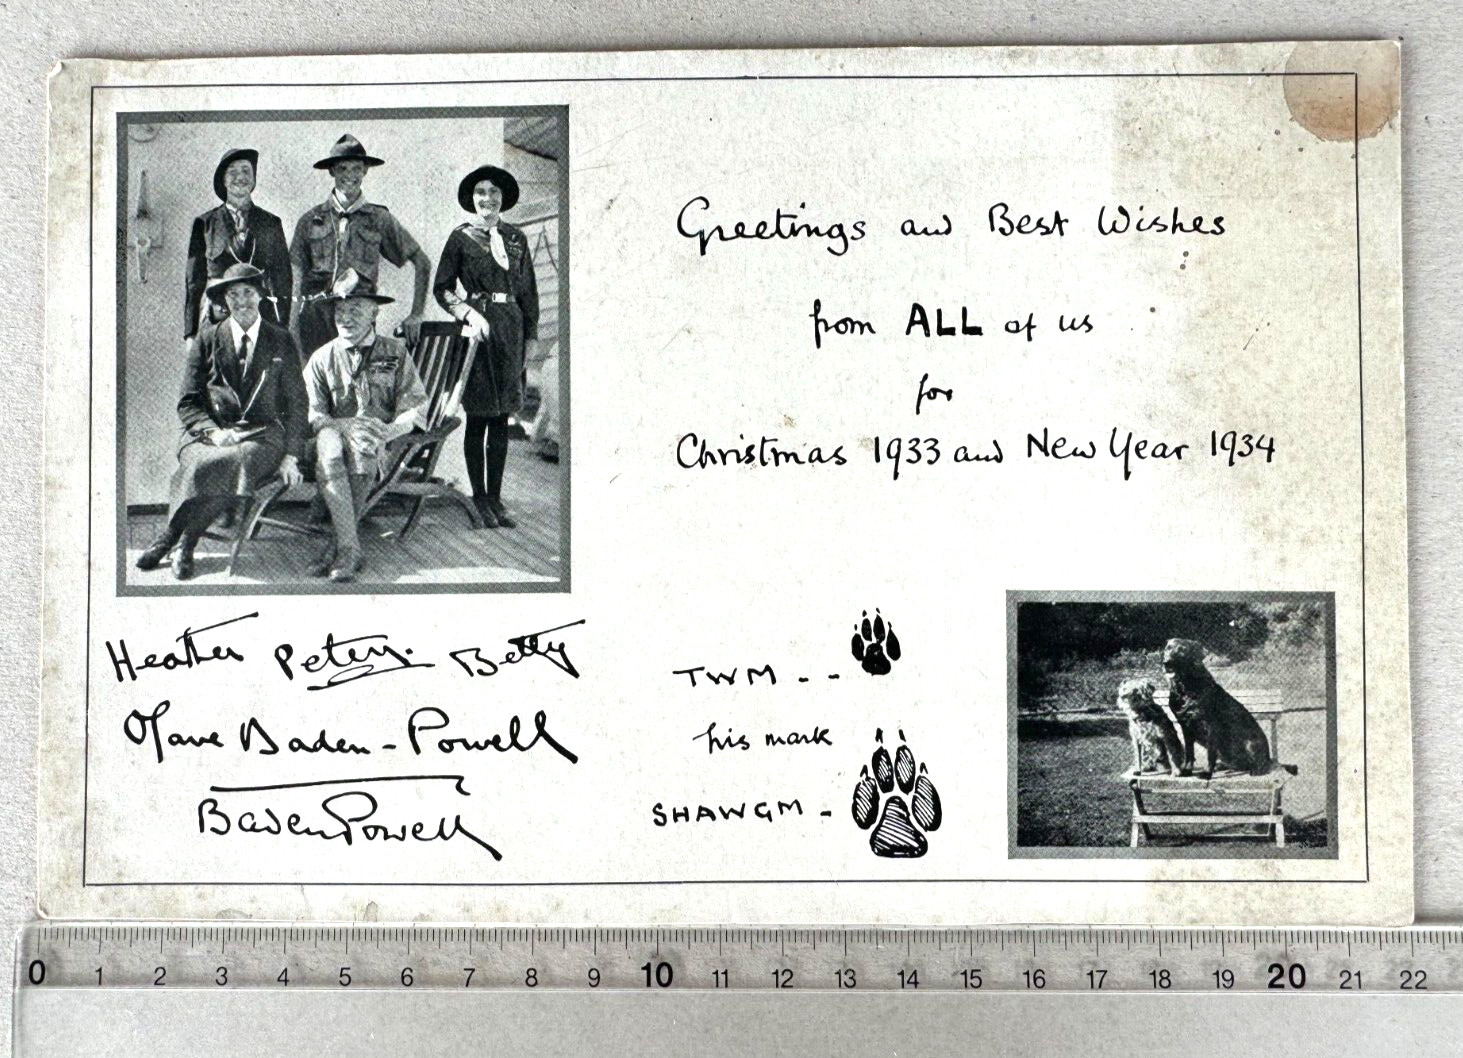 Greetings and Best Wishes
from ALL of us
for
Christmas 1933 and New Year 1934
Heather Peter. Betty
Olave Baden-Powell
Baden Powell
TWM - -
his mark
SHAWGM -
0 1 2 3 4 5 6 7 8 9 10 11 12 13 14 15 16 17 18 19 20 21 22